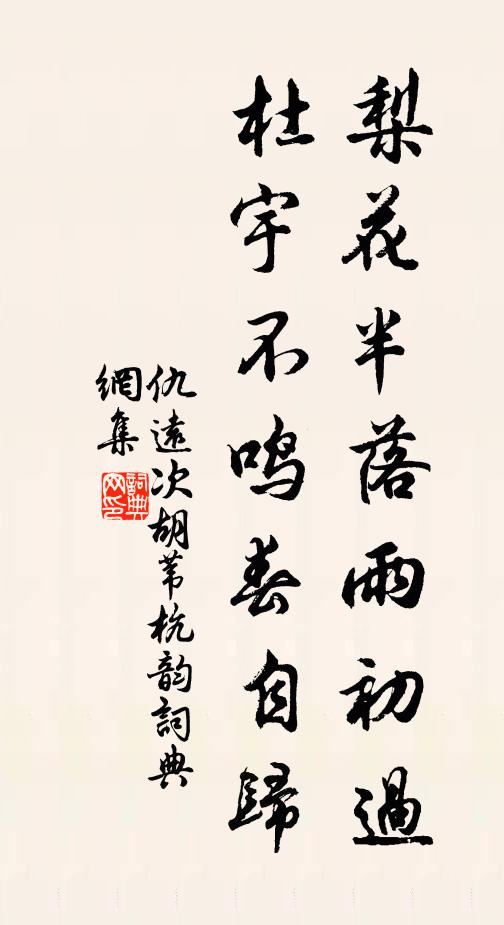 梨花半落雨初過
杜宇不鳴春自歸
仇遠次胡葦杭韵詞典
網集
詞典
网印